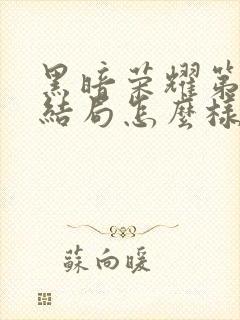 黑暗榮耀第
結局怎麼樣
蘇向暖